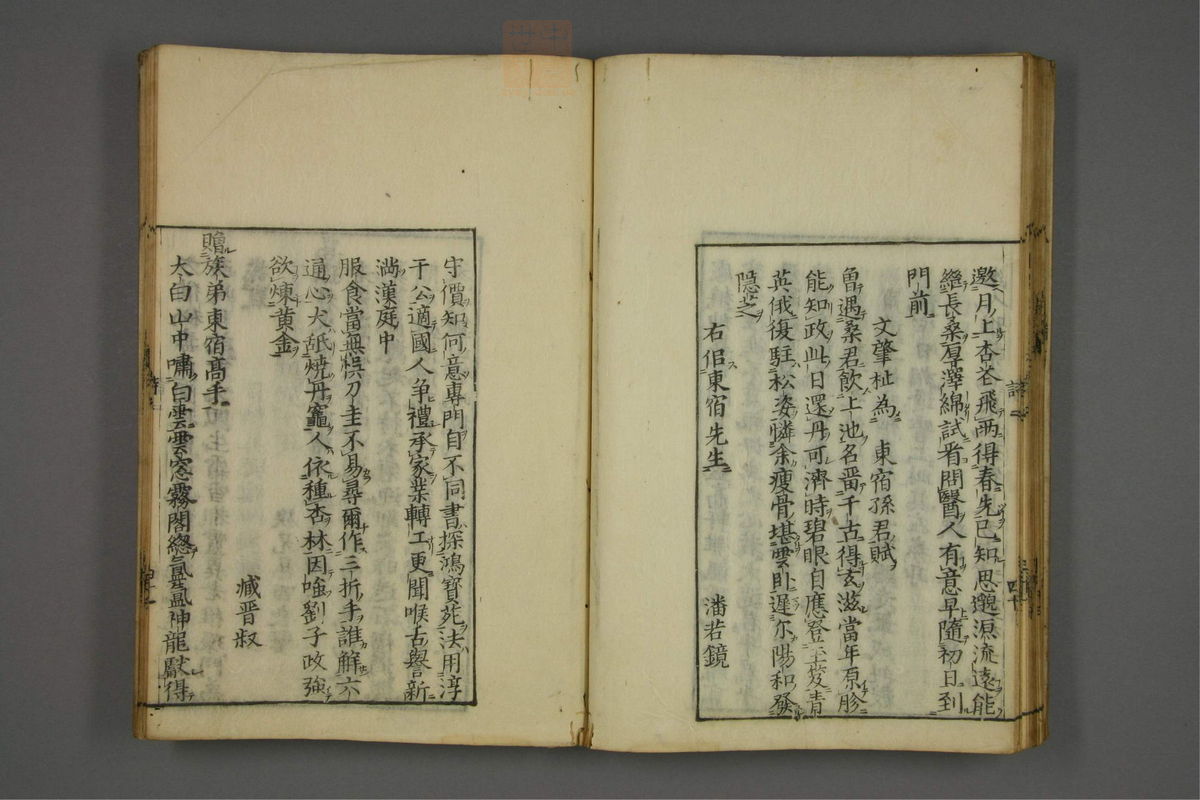 邀月上杏苍飛兩得春先已知思邈源流遠能
繼長桑厚澤綿試看問醫人有意早隨初日到
門前
文肇祉為 東宿孫君賦
魯遇桑君飲上池名畱千古得玄滋當年原胗
能知政此日還丹可濟時碧眼自應登笈青
英俄復駐松姿憐余瘦骨堪雲卧遲尔陽和發
隠芝
右侶東宿先生 潘若鏡
守價知何意專門自不同書探鴻寳苑法用淳
于公適國人争禮承家業轉工更聞喉舌譽新
滿漢庭中
服食當無悮刀圭不易尋爾作三折手誰解六
通心犬舐燒丹竈人依種杏林因嗤劉子政強
欲煉黄金
臧晋叔
贈族弟東宿髙手
太白山中嘯白雲雲窓霧閣緫氤氲神龍獻得